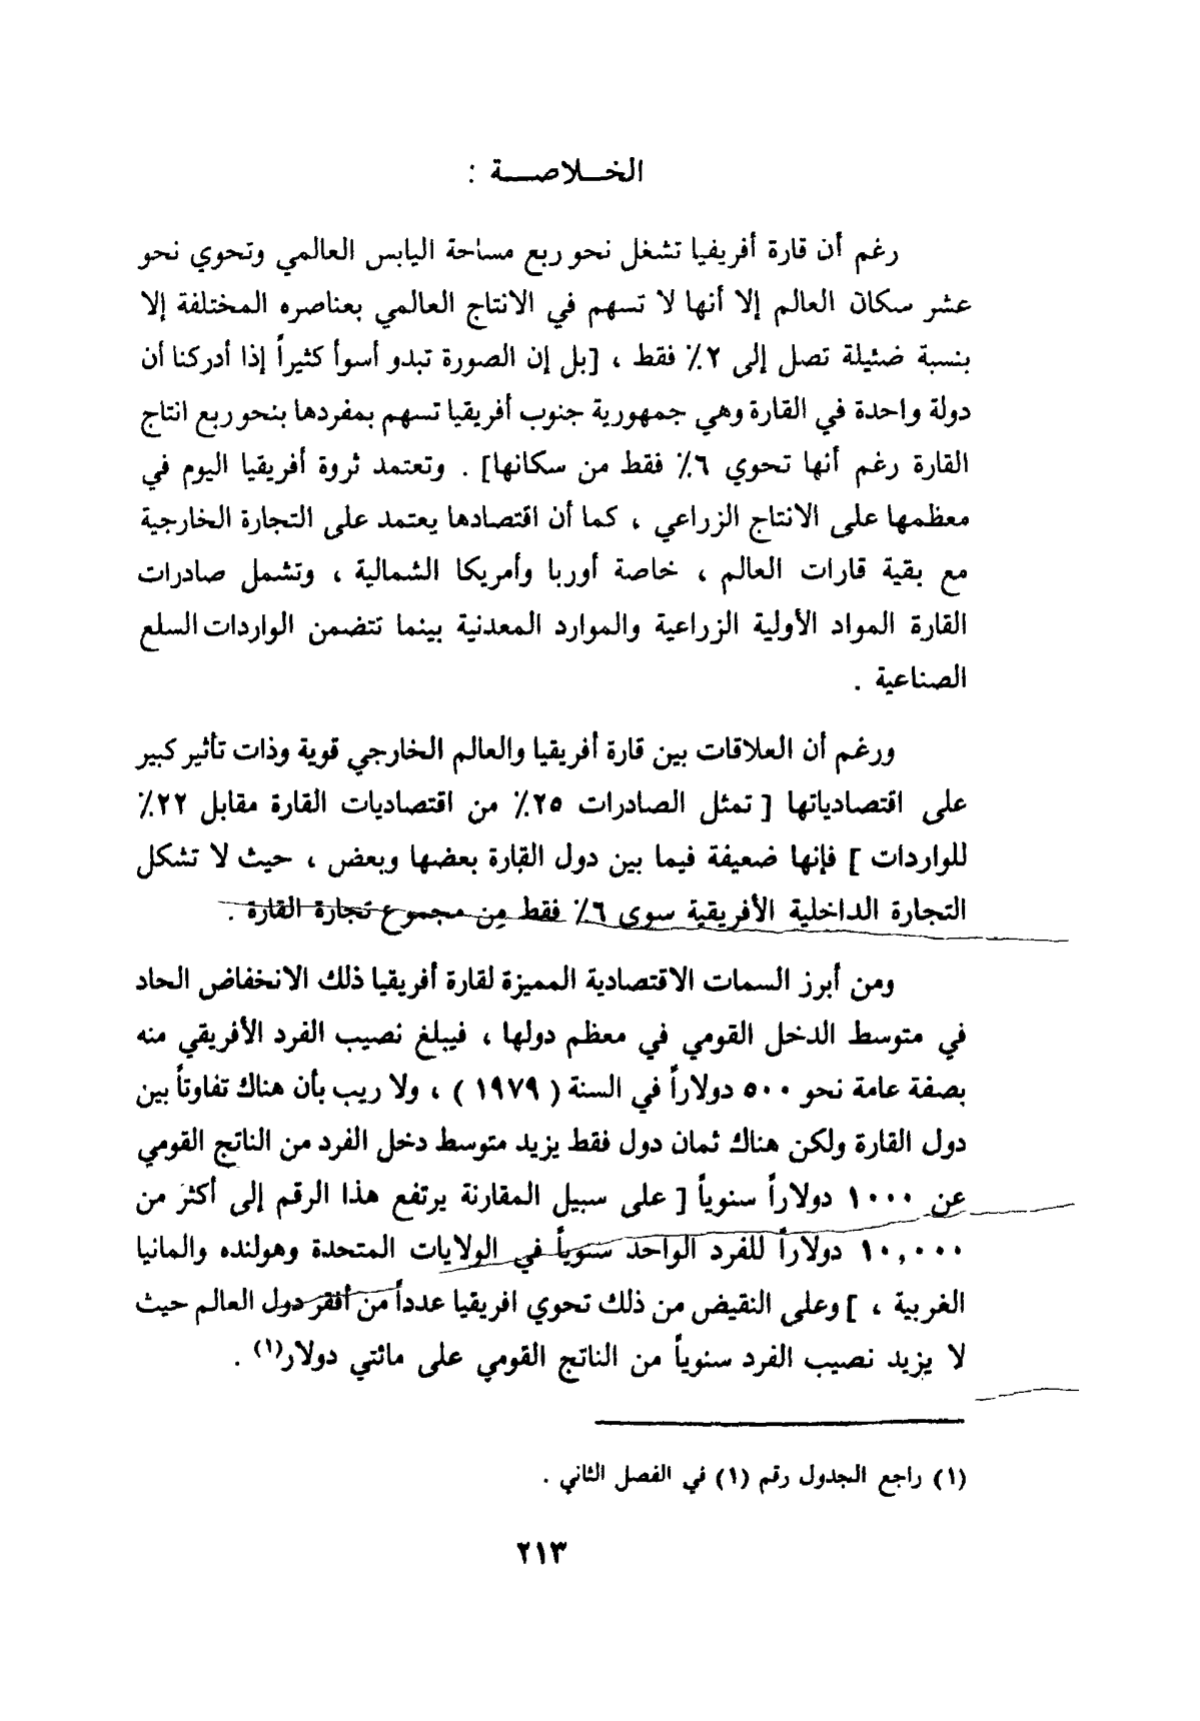 الخـلاصـــة :
رغم أن قارة أفريفيا تشغل نحو ربع مساحة اليابس العالمي وتحوي نحو
عشر سكان العالم إلا أنها لا تسهم في الانتاج العالمي بعناصره المختلفة إلا
بنسبة ضئيلة تصل إلى ٢٪ فقط ، [بل إن الصورة تبدو أسوأ كثيراً إذا أدركنا أن
دولة واحدة في القارة وهي جمهورية جنوب أفريقيا تسهم بمفردها بنحو ربع انتاج
القارة رغم أنها تحوي ٦٪ فقط من سكانها] . وتعتمد ثروة أفريقيا اليوم في
معظمها على الانتاج الزراعي ، كما أن اقتصادها يعتمد على التجارة الخارجية
مع بقية قارات العالم ، خاصة أوربا وأمريكا الشمالية ، وتشمل صادرات
القارة المواد الأولية الزراعية والموارد المعدنية بينما تتضمن الواردات السلع
الصناعية .
ورغم أن العلاقات بين قارة أفريقيا والعالم الخارجي قوية وذات تأثير كبير
على اقتصادياتها [ تمثل الصادرات ٢٥٪ من اقتصاديات القارة مقابل ٢٢٪
للواردات ] فإنها ضعيفة فيما بين دول القارة بعضها وبعض ، حيث لا تشكل
التجارة الداخلية الأفريقية سوى ٦٪ فقط من مجموع تجارة القارة .
ومن أبرز السمات الاقتصادية المميزة لقارة أفريقيا ذلك الانخفاض الحاد
في متوسط الدخل القومي في معظم دولها ، فيبلغ نصيب الفرد الأفريقي منه
بصفة عامة نحو ٥٠٠ دولاراً في السنة ( ١٩٧٩ ) ، ولا ريب بأن هناك تفاوتاً بين
دول القارة ولكن هناك ثمان دول فقط يزيد متوسط دخل الفرد من الناتج القومي
عن ١٠٠٠ دولاراً سنوياً [ على سبيل المقارنة يرتفع هذا الرقم إلى أكثر من
١٠,٠٠٠ دولاراً للفرد الواحد سنوياً في الولايات المتحدة وهولنده والمانيا
الغربية ، ] وعلى النقيض من ذلك تحوي افريقيا عدداً من أفقر دول العالم حيث
لا يزيد نصيب الفرد سنوياً من الناتج القومي على مائتي دولار(١) .
(١) راجع الجدول رقم (١) في الفصل الثاني .
٢١٣